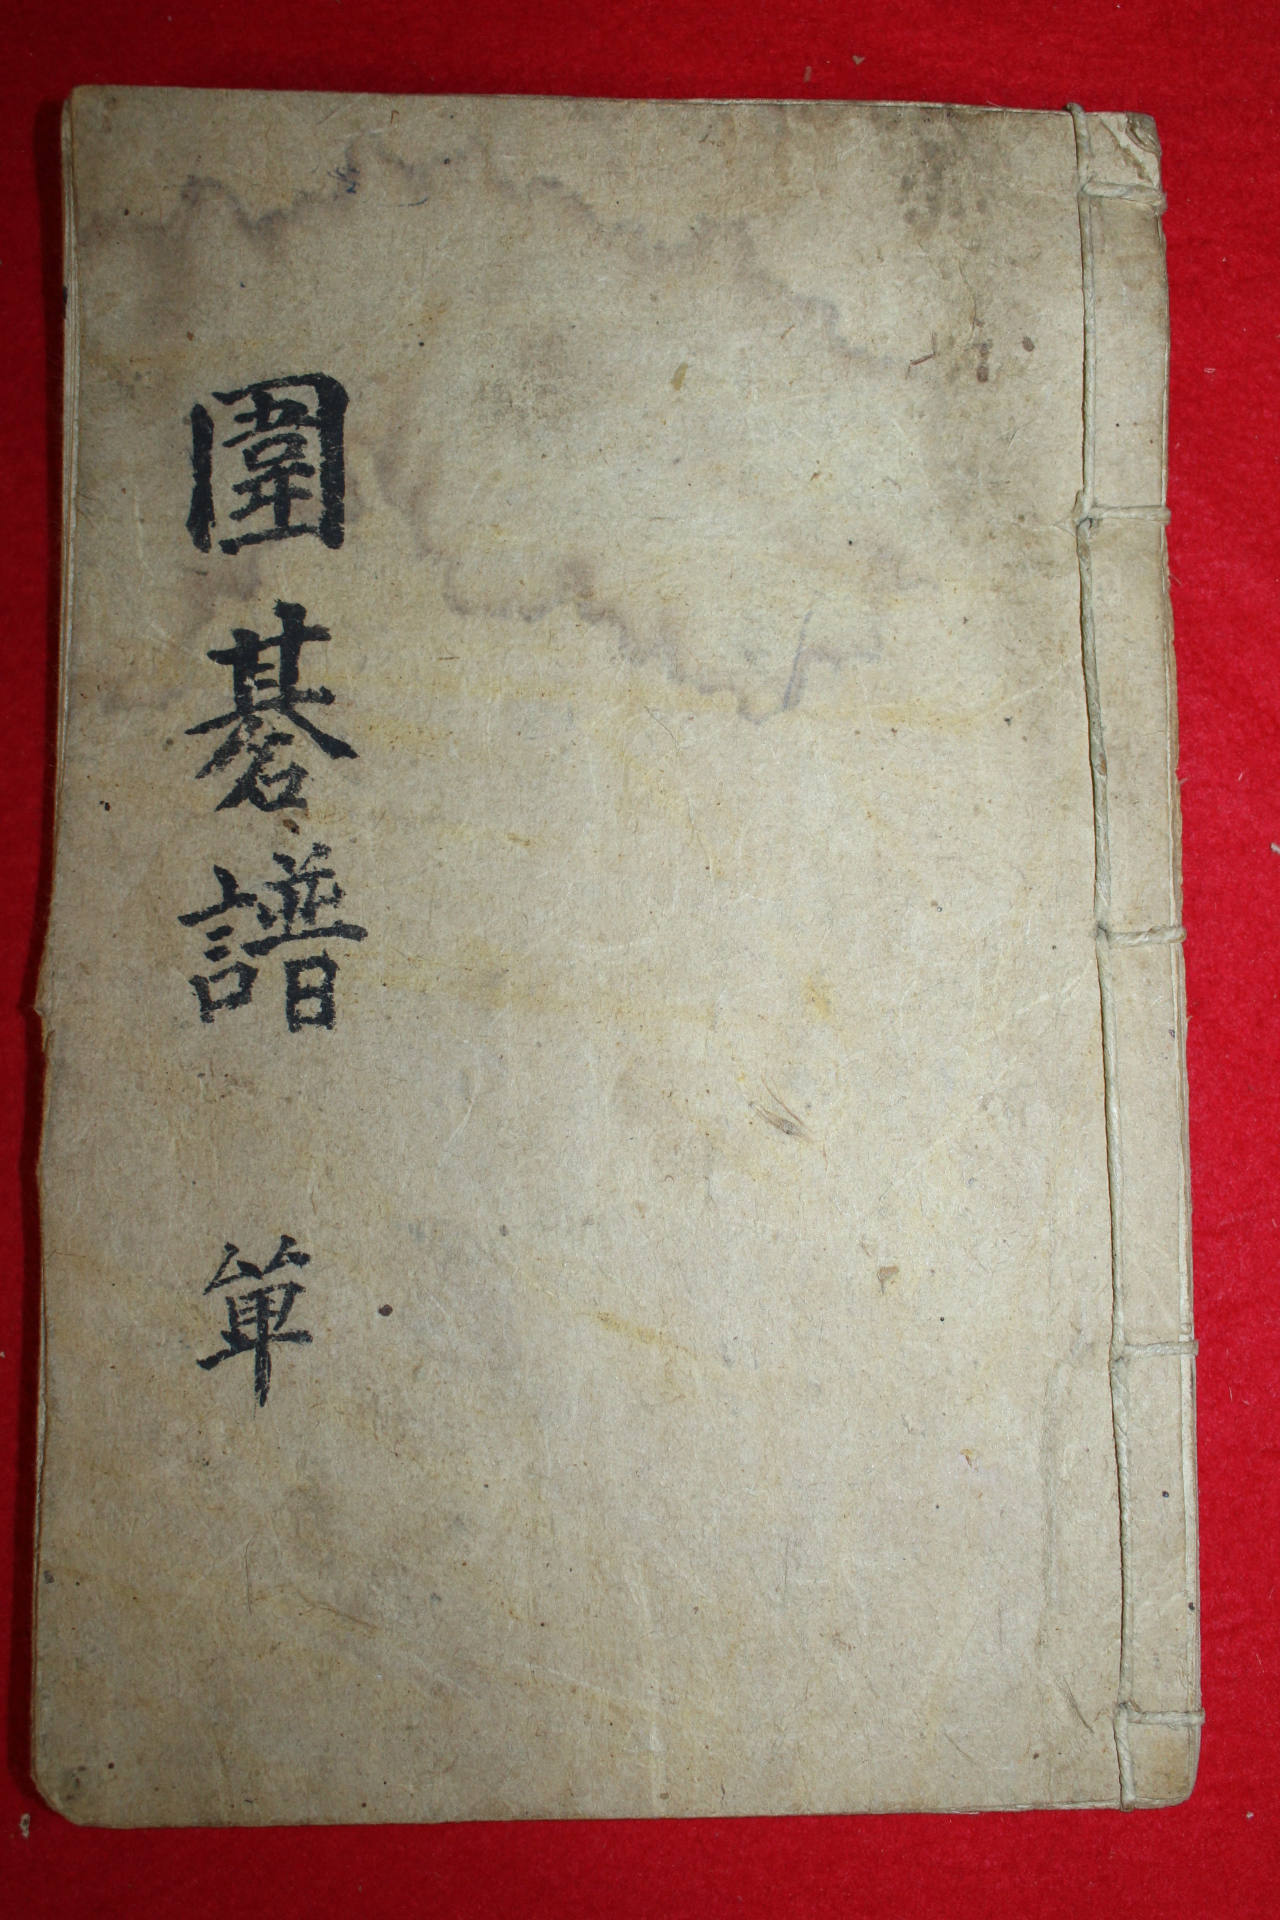 圍碁譜 單